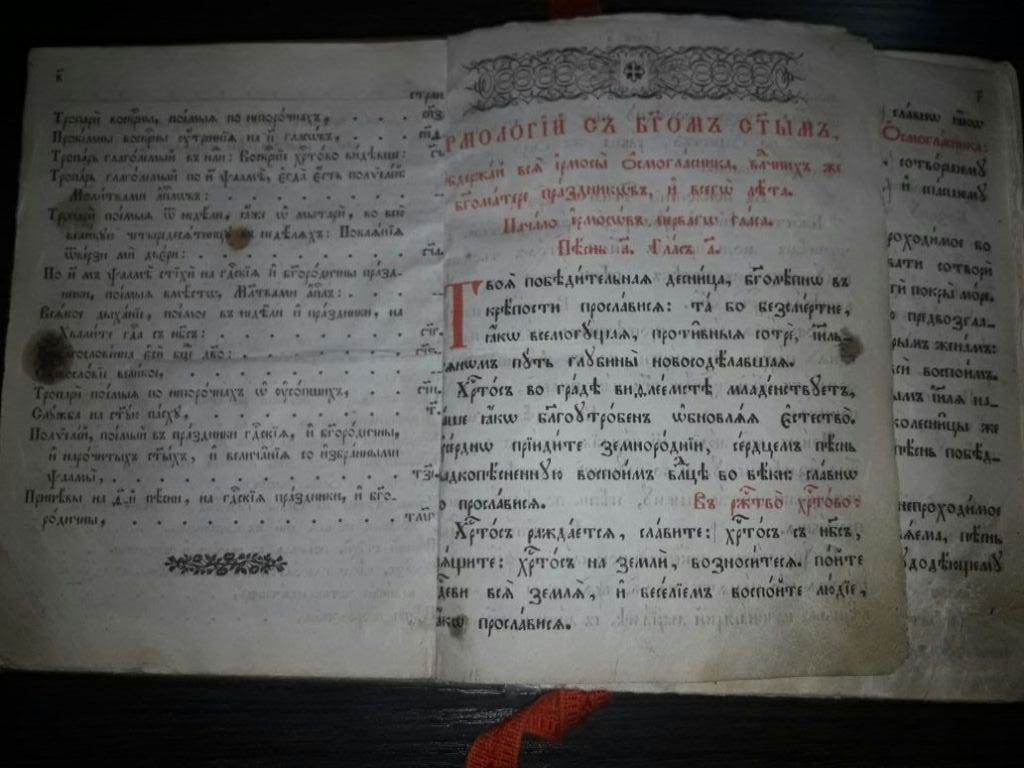 к҃
стран
Тропарѝ воскр҃ны, поє́мыѧ по непоро́чнахъ,
Прокі́мны воскр҃ны ᲂу҆́трєннїѧ на и҃ гласѡ́въ,
Тропа́рь глаго́лемый въ нл҃и: Воскрⷭ҇нїе хрⷭ҇то́во ви́дѣвше:
Тропа́рь глаго́лемый по н҃ ѱалмѣ̀, є҆гда̀ є҆́сть полѷеле́й:
Моли́твами а҆пⷭ҇лъ:
Тропарѝ поє́мыѧ ѿ недѣ́ли, ꙗ҆́же ѡ҆ мытарѝ, во всю̀
вели́кую четыредесѧ́тницу въ недѣ́лѧхъ: Покаѧ́нїѧ
ѿве́рзи мѝ двє́ри:
По н҃ мъ ѱалмѣ̀ стїхѝ на гдⷭ҇скїѧ и҆ бг҃оро́дичны пра́зд-
ники, поє́мыѧ вмѣ́стѡ, Мл҃твами а҆пⷭ҇лъ:
Всѧ́кое дыха́нїе, пое́мое въ недѣ́ли и҆ пра́здники, на
Хвали́те гдⷭ҇а съ нб҃съ:
Преблагослове́нна є҆сѝ бц҃е дв҃о:
Славосло́вїе вели́кое,
Тропарѝ поє́мыѧ по непоро́чнахъ ѡ҆ ᲂу҆со́пшихъ,
Слу́жба на ст҃у́ю па́сху,
Полѷеле́й, пое́мый въ пра́здники гдⷭ҇скїѧ, и҆ бг҃оро́дичны,
и҆ нарочи́тыхъ ст҃ы́хъ, и҆ велича̑нїѧ со и҆збра́нными
ѱалмы̀,
Припѣ́вы на д҃.й пѣ́сни, на гдⷭ҇скїѧ пра́здники, и҆ бг҃о-
ро́дичны,
РМОЛО́ГІЙ СЪ БГ҃ОМЪ СТ҃Ы́МЪ,
держа́й всѧ̑ і҆рмосы̀ Ѻ҆смогла́сника, влⷣчнихъ же
бг҃ома́тере пра́здникѡвъ, и҆ всегѡ̀ лѣ́та.
Нача́ло і҆рмосѡ́въ пе́рвагѡ гла́са.
Пѣ́снь а҃. Гла́съ а҃.
Твоѧ̀ побѣди́тельнаѧ десни́ца, бг҃олѣ́пнѡ въ
крѣ́пости просла́висѧ: та́ бо безсме́ртне,
ꙗ҆́кѡ всемогу́щаѧ, проти̑вныѧ сотрѐ, і҆и҃ль-
тѧнѡмъ пу́ть глубины̀ новосодѣ́лавшаѧ.
Хрⷭ҇то́съ во гра́дѣ виѳлее́мстѣ младе́нствуетъ,
ꙗ҆́кѡ бл҃гоутро́бенъ ѡ҆бновлѧ́ѧ є҆стество̀.
прїиди́те земноро́днїи, се́рдцемъ пѣ́снь
сладкопѣ́сненную воспои́мъ влⷣцѣ во вѣ́ки: сла́внѡ
просла́висѧ.
Въ ржⷭ҇тво̀ хрⷭ҇то́во:
Хрⷭ҇то́съ ражда́етсѧ, сла́вите: хрⷭ҇то́съ съ нб҃съ,
срѧ́щите: хрⷭ҇то́съ на землѝ, возноси́тесѧ. по́йте
гдⷭ҇еви всѧ̀ землѧ̀, и҆ весе́лїемъ воспо́йте лю́дїе,
ꙗ҆́кѡ просла́висѧ.
г҃
сла́внѡ ꙗ҆́кѡ
Ѻ҆смогла́сника:
сотво́ршему
и҆ спа́сшему
роходи́мое во
сотворѝ
покры̀ мо́ре.
предвозгла-
же́намъ:
воспои́мъ.
і҆и҃лѧ на-
колесни́цы же
пѣ́снь побѣ́д-
непроходи́мое
пѣ́снь